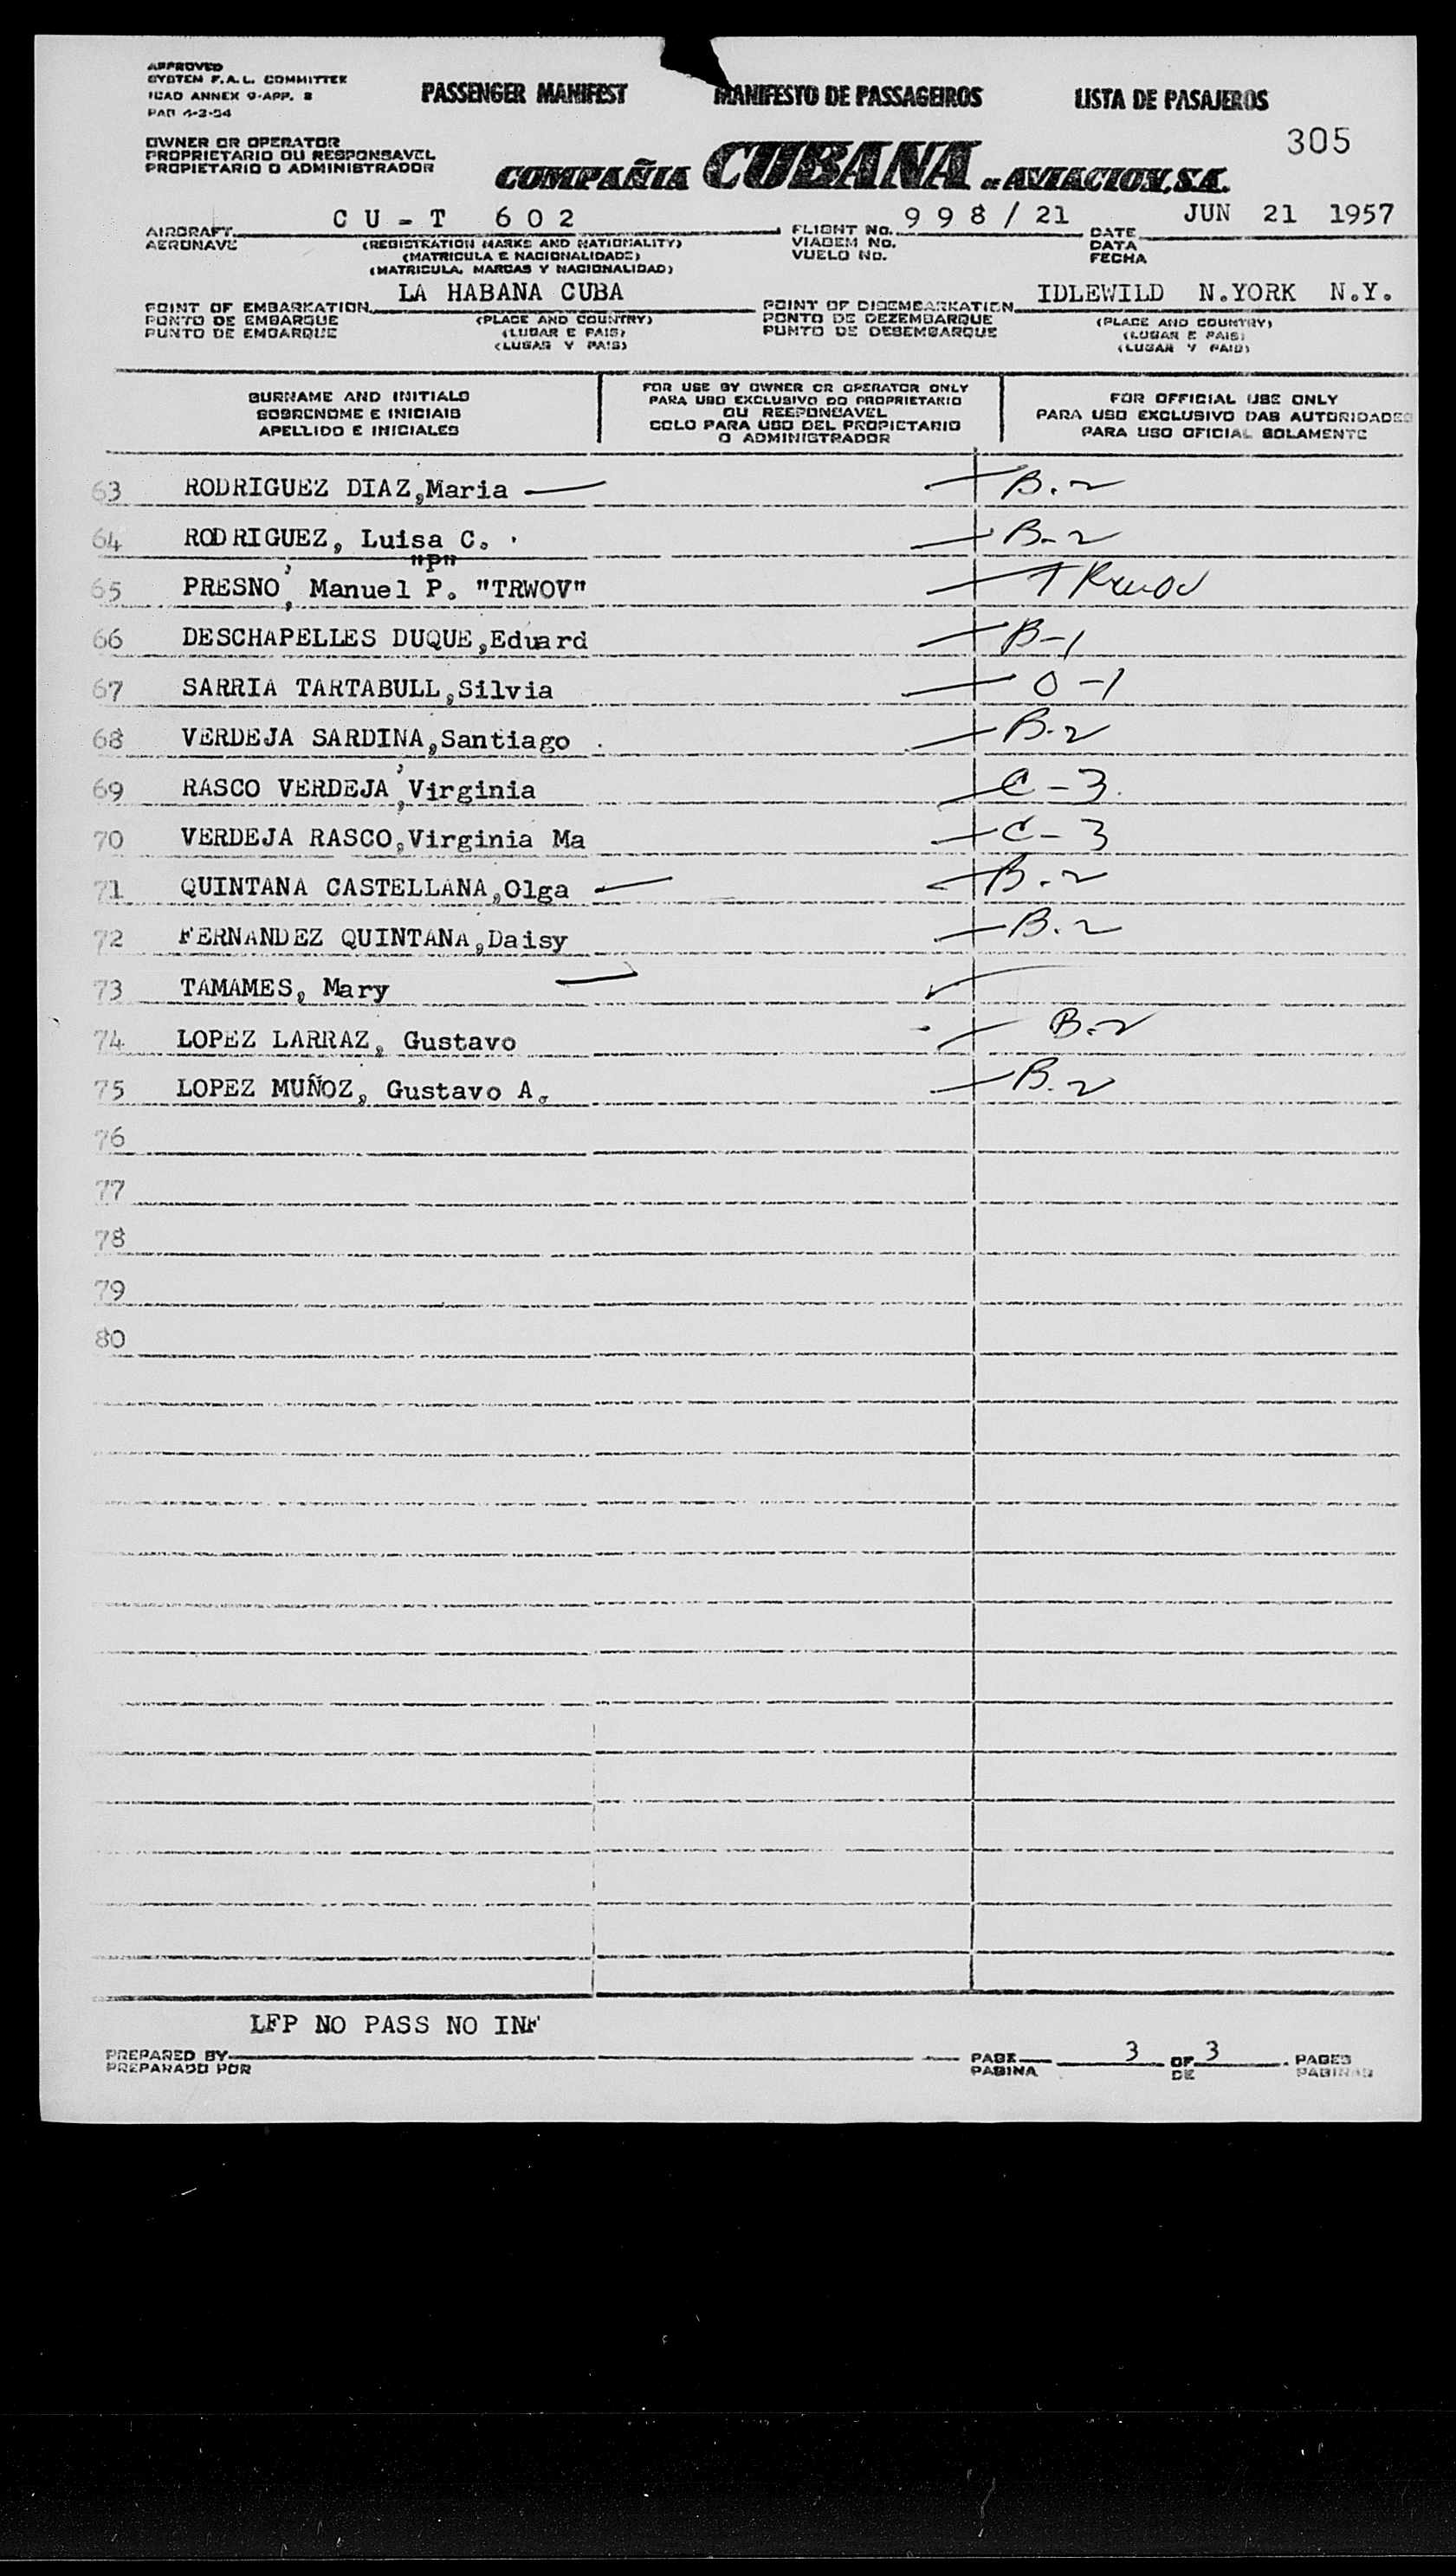 APPROVED
SYSTEM F.A.L. COMMITTEE
ICAO ANNEX 9-APP. 2
PAN 4-2-54
PASSENGER MANIFEST MANIFESTO DE PASSAGEIROS LISTA DE PASAJEROS
305
OWNER OR OPERATOR
PROPRIETARIO OU RESPONSAVEL
PROPIETARIO O ADMINISTRADOR
COMPAÑIA CUBANA de AVIACION, S.A.
AIRCRAFT CU-T 602 FLIGHT No. 998/21 DATE JUN 21 1957
AERONAVE (REGISTRATION MARKS AND NATIONALITY) VIAGEM No. DATA
(MATRICULA E NACIONALIDADE) VUELO No. FECHA
(MATRICULA, MARCAS Y NACIONALIDAD)
POINT OF EMBARKATION LA HABANA CUBA POINT OF DISEMBARKATION IDLEWILD N.YORK N.Y.
PONTO DE EMBARQUE (PLACE AND COUNTRY) PONTO DE DEZEMBARQUE (PLACE AND COUNTRY)
PUNTO DE EMBARQUE (LUGAR E PAIS) PUNTO DE DESEMBARQUE (LUGAR E PAIS)
(LUGAR Y PAIS) (LUGAR Y PAIS)
SURNAME AND INITIALS
SOBRENOME E INICIAIS
APELLIDO E INICIALES
FOR USE BY OWNER OR OPERATOR ONLY
PARA USO EXCLUSIVO DO PROPRIETARIO
OU RESPONSAVEL
SOLO PARA USO DEL PROPIETARIO
O ADMINISTRADOR
FOR OFFICIAL USE ONLY
PARA USO EXCLUSIVO DAS AUTORIDADES
PARA USO OFICIAL SOLAMENTE
63 RODRIGUEZ DIAZ,Maria B.2
64 RODRIGUEZ, Luisa C. B-2
"P"
65 PRESNO, Manuel P. "TRWOV" TRWOV
66 DESCHAPELLES DUQUE,Eduard B-1
67 SARRIA TARTABULL,Silvia O-1
68 VERDEJA SARDINA,Santiago B-2
69 RASCO VERDEJA,Virginia C-3
70 VERDEJA RASCO,Virginia Ma C-3
71 QUINTANA CASTELLANA,Olga B.2
72 FERNANDEZ QUINTANA,Daisy B.2
73 TAMAMES, Mary
74 LOPEZ LARRAZ, Gustavo B-2
75 LOPEZ MUÑOZ, Gustavo A. B.2
76
77
78
79
80
LFP NO PASS NO INF
PREPARED BY PAGE 3 OF 3 PAGES
PREPARADO POR PAGINA DE PAGINAS